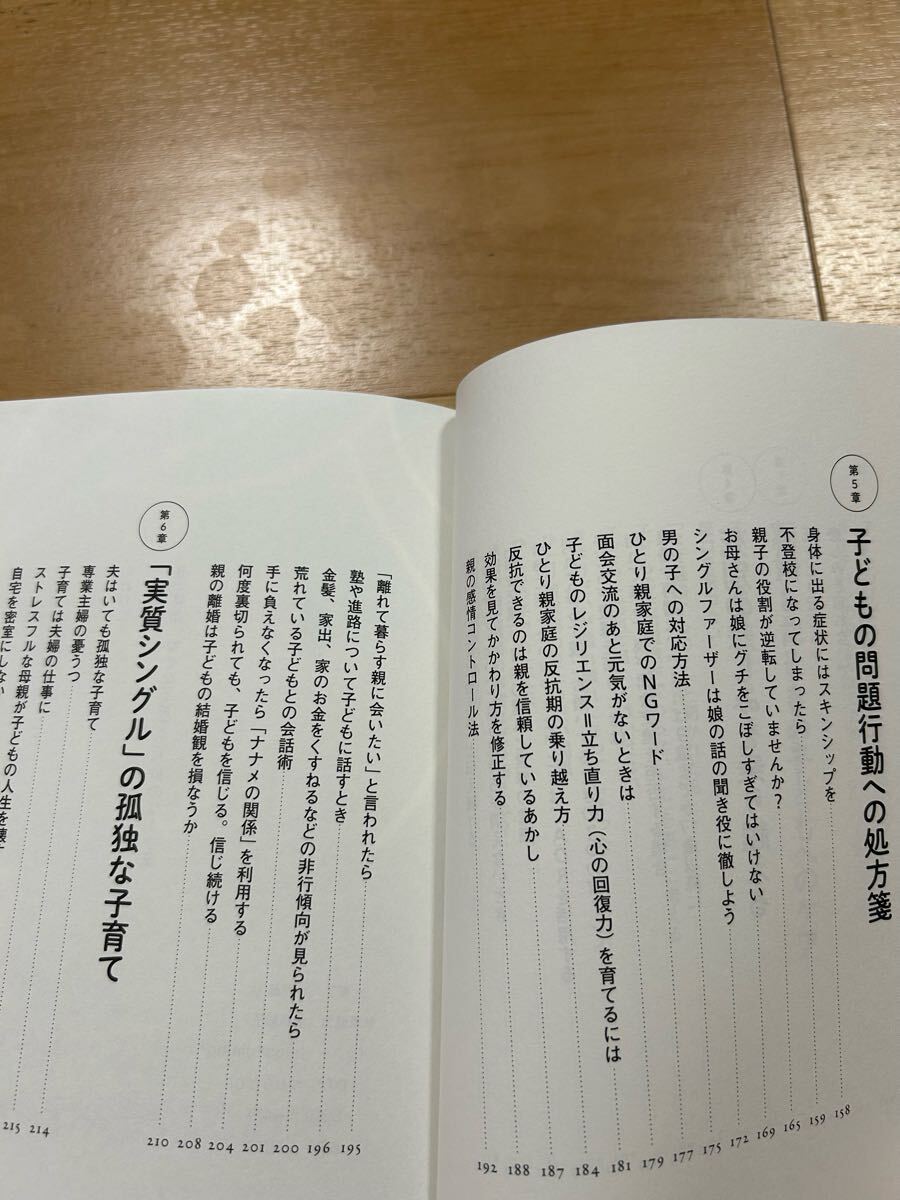 第5章
子どもの問題行動への処方箋
身体に出る症状にはスキンシップを 158
不登校になってしまったら 159
親子の役割が逆転していませんか? 165
お母さんは娘にグチをこぼしすぎてはいけない 169
シングルファーザーは娘の話の聞き役に徹しよう 172
男の子への対応方法 175
ひとり親家庭でのNGワード 177
面会交流のあと元気がないときは 179
子どものレジリエンス=立ち直り力(心の回復力)を育てるには 181
ひとり親家庭の反抗期の乗り越え方 184
反抗できるのは親を信頼しているあかし 187
効果を見てかかわり方を修正する 188
親の感情コントロール法 192
「離れて暮らす親に会いたい」と言われたら 195
塾や進路について子どもに話すとき 196
金髪、家出、家のお金をくすねるなどの非行傾向が見られたら 200
荒れている子どもとの会話術 201
手に負えなくなったら「ナナメの関係」を利用する 204
何度裏切られても、子どもを信じる。信じ続ける 208
親の離婚は子どもの結婚観を損なうか 210
第6章
「実質シングル」の孤独な子育て
夫はいても孤独な子育て 214
専業主婦の憂うつ 215
子育ては夫婦の仕事に
ストレスフルな母親が子どもの人生を壊
自宅を密室にしない